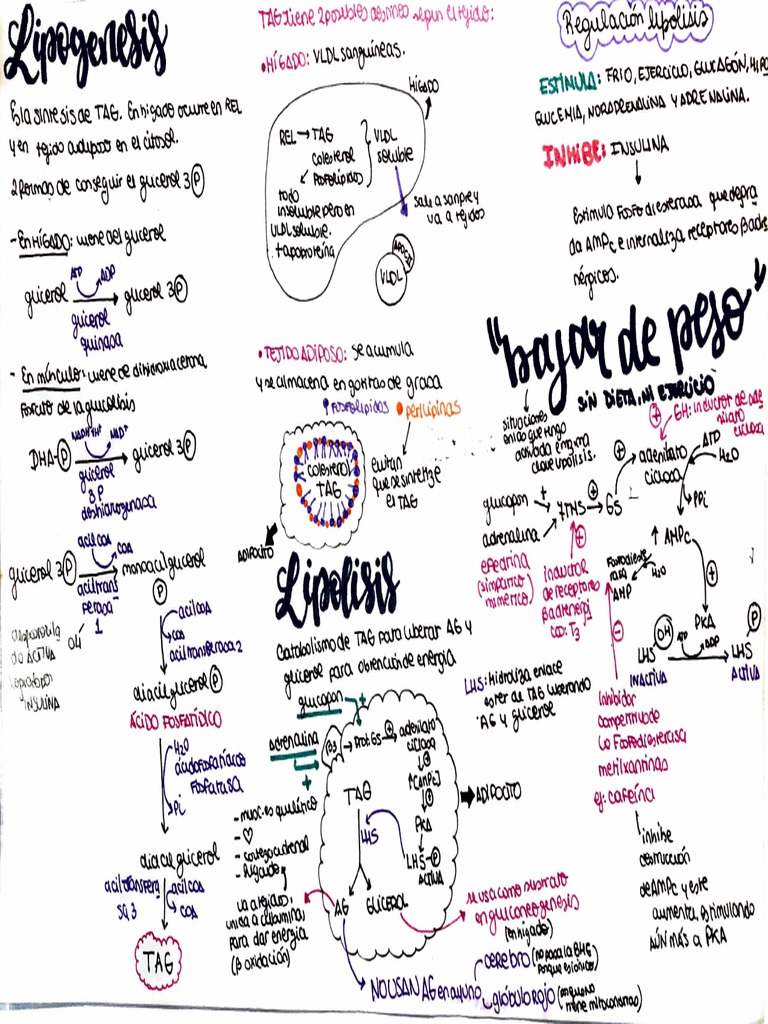 Lipogenesis
Es la sintesis de TAG. En higado ocurre en REL
y en tejido adiposo en el citosol.
2 formas de conseguir el glicerol 3 P
- En HÍGADO: viene del glicerol
ATP ADP
glicerol → glicerol 3 P
glicerol
quinasa
- En músculo: viene de dihidroxiacetona
fosfato de la glucolisis
NADH+H+ NAD+
DHA-P → glicerol 3 P
glicerol
3P
deshidrogenasa
acil COA
COA
glicerol 3 P → monoacilglicerol
P
acil trans
ferasa
1
do ACTIVA
INSULINA
acil COA
COA
aciltransferasa 2
diacilglicerol P
ÁCIDO FOSFATÍDICO
H2O
ácido fosfatidico
fosfatasa
Pi
diacilglicerol
acil transfera
sa 3
acil COA
COA
TAG
TAG tiene 2 posibles destinos segun el tejido:
• HÍGADO: VLDL sanguíneas.
HÍGADO
REL → TAG
colesterol
fosfolípidos
VLDL
soluble
todo
insoluble pero en
VLDL soluble.
+ apoproteína
sale a sangre y
va a tejidos
APOC II
VLDL
• TEJIDO ADIPOSO: se acumula
y se almacena en gotitas de grasa
fosfolípidos perilipinas
colesterol
TAG
evitan
que se sintetize
el TAG
ADIPOCITO
Lipolisis
Catabolismo de TAG para liberar AG y
glicerol para obtención de energía
glucagon +
adrenalina +
β3 → Prot GS + adenilato
ciclasa
+
↑[AMPc]
+
PKA
LHS-P
ACTIVA
TAG
LHS
AG GLICEROL
ADIPOCITO
- musc. esquelético
- ♡
- corteza adrenal
- higado
va a tejidos
unida a albumina
para dar energia
(β oxidación)
se usa como sustrato
en gluconeogenesis
(en higado)
NO USAN AG en ayuno
cerebro (no pasa la BHE
porque es iónico)
glóbulo rojo (porque no
tiene mitocondrias)
LHS: Hidroliza enlace
ester de TAG liberando
AG y glicerol
Regulación lipolisis
ESTIMULA: FRIO, EJERCICIO, GLUCAGÓN, HIPO
GLUCEMIA, NORADRENALINA Y ADRENALINA.
INHIBE: INSULINA
Estimula fosfodiesterasa que degra
da AMPc e internaliza receptores βadre
nérgicos.
"bajar de peso"
SIN DIETA, NI EJERCICIO
situaciones
en las que tengo
activada enzima
clave lipolisis.
+ GH: inductor de ade
nilato
ciclasa
adenilato
ciclasa
ATP
H2O
PPi
glucagon +
adrenalina
7TMS + GS +
efedrina
(simpatico
mimetico)
+
inductor
de receptores
βadrenergi
cos: T3
↑ AMPc
Fosfodieste
rasa
H2O
AMP
+
PKA
LHS OH
INACTIVA
ATP ADP
LHS P
ACTIVA
-
Inhibidor
competitivo de
la fosfodiesterasa
metilxantinas
ej: cafeína
inhibe
destrucción
de AMPc y este
aumenta, estimulando
AÚN MÁS a PKA